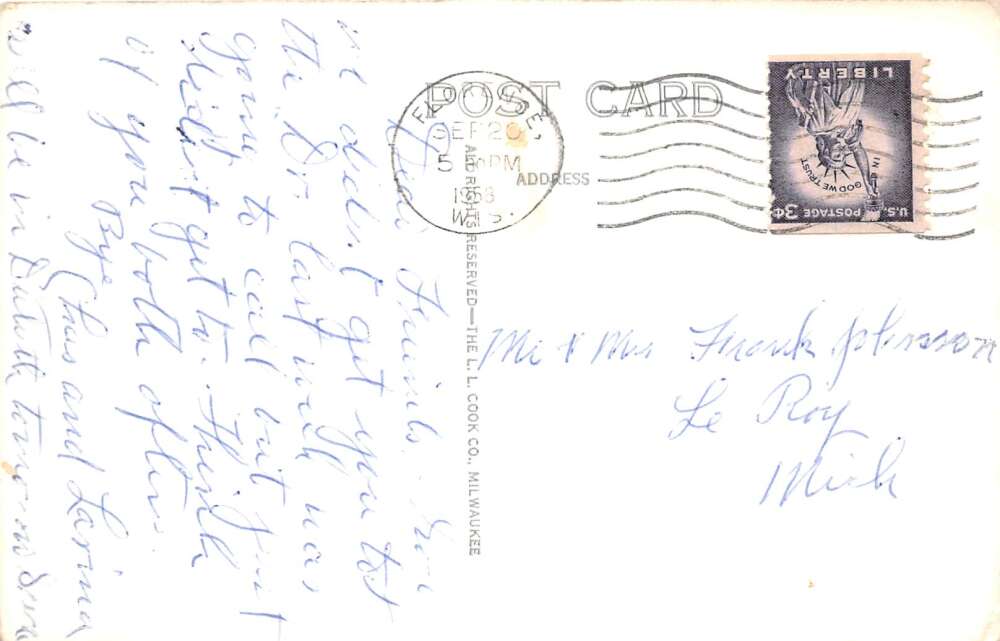 POST CARD
ADDRESS
SEP 20
PM
WIS.
U.S. POSTAGE 3¢
IN GOD WE TRUST
LIBERTY
ALL RIGHTS RESERVED—THE L. L. COOK CO., MILWAUKEE
Dear Friends.
we didn't get you to
the Dr last week was
going to call but just
didn't get to. Think
of you both often.
Bye
Chas and Lorina
will be in Duluth tomorrow
Mr & Mrs Frank Johnson
Le Roy
Mich